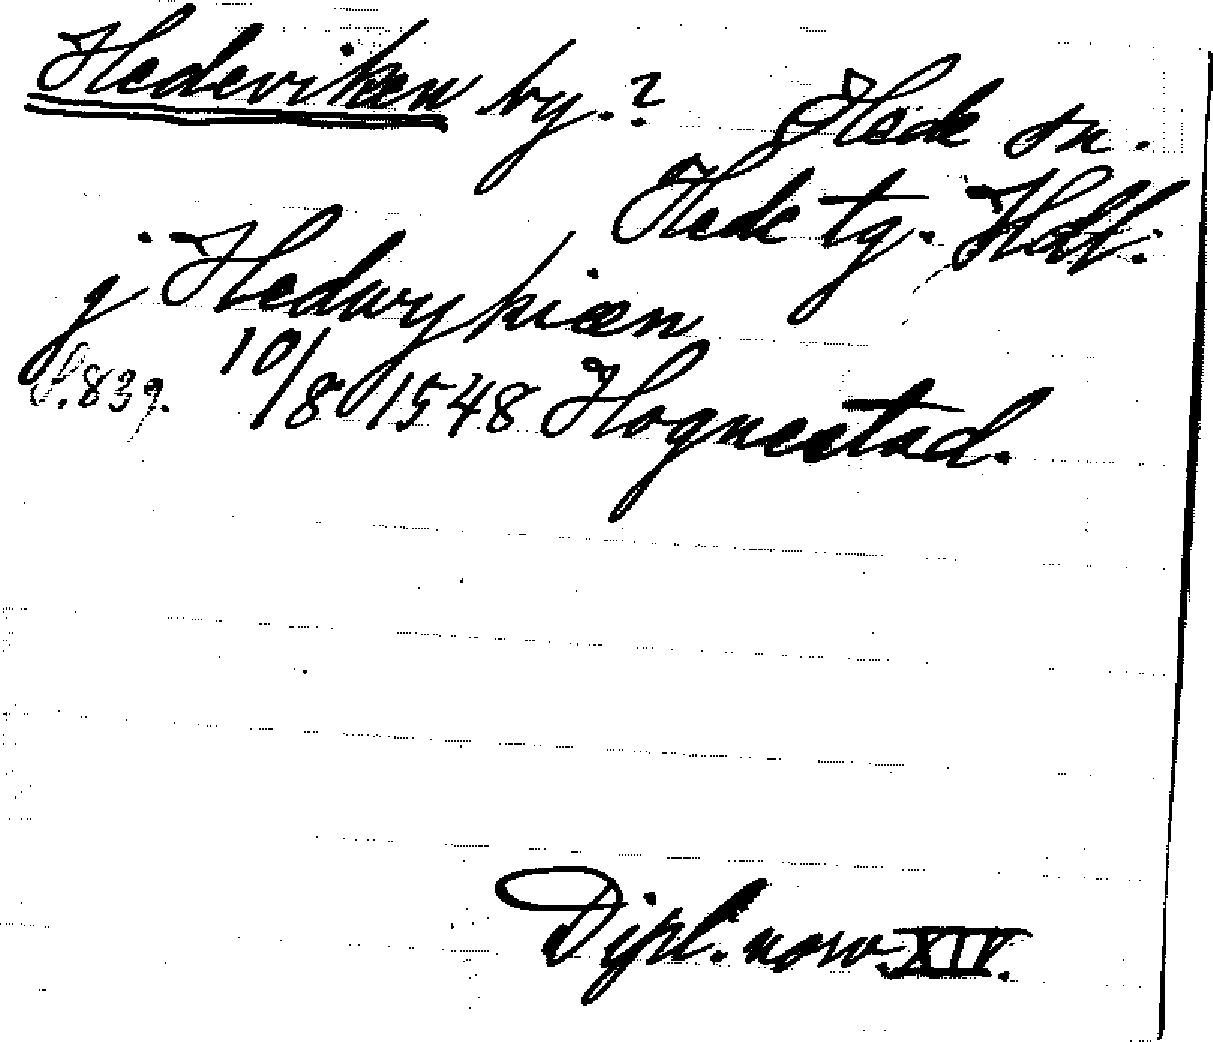 Hedeviken by.? Hede sn.
Hede tg. Hdl.
j Hedwykiæn
S. 839. 10/8 1548 Hognestad.
Dipl. norv. XIV.